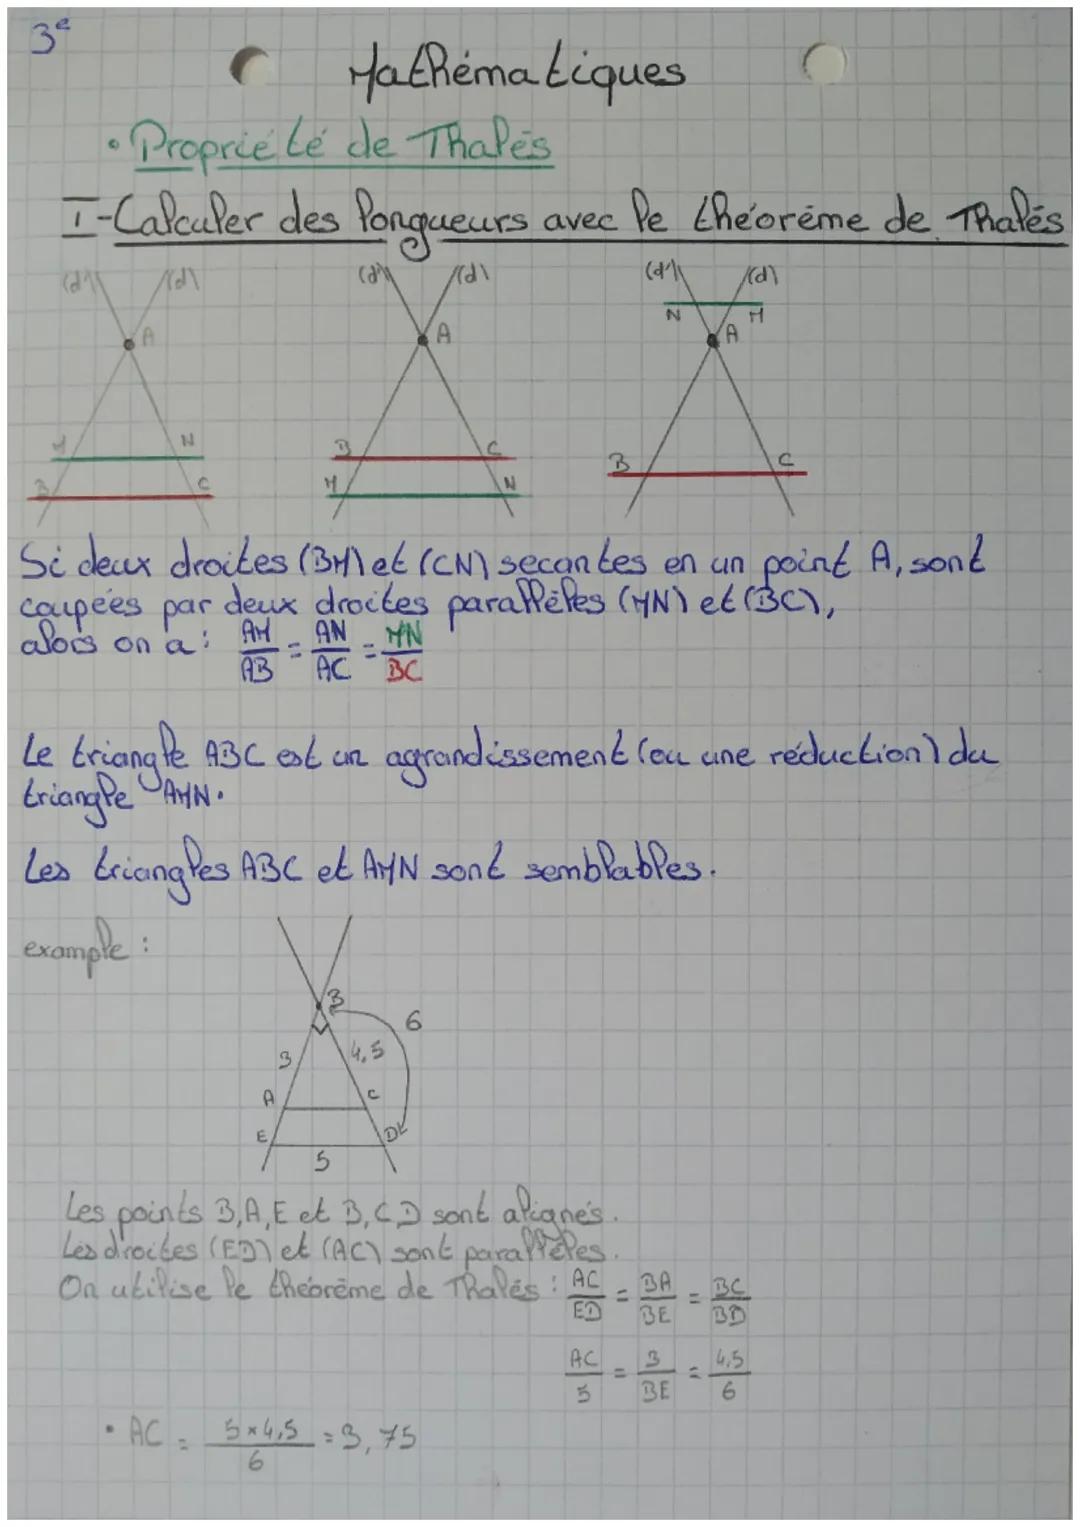 3e
Mathématiques
• Propriété de Thalès
I-Calculer des longueurs avec le théorème de Thalès
(d') (d) (d') (d) (d') (d)
N M
A A A
M N B C B C
B C M N
Si deux droites (BM) et (CN) secantes en un point A, sont
coupées par deux droites parallèles (MN) et (BC),
alors on a : AM/AB = AN/AC = MN/BC
Le triangle ABC est un agrandissement (ou une réduction) du
triangle AMN.
Les triangles ABC et AMN sont semblables.
example :
B
6
3 4,5
A C
E D
5
Les points B,A,E et B,C,D sont alignés.
Les droites (ED) et (AC) sont parallèles.
On utilise le théorème de Thalès : AC/ED = BA/BE = BC/BD
AC/5 = 3/BE = 4,5/6
• AC = 5×4,5/6 = 3,75